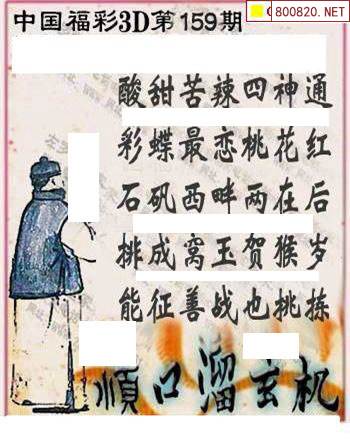 800820.NET
中国福彩3D第159期
酸甜苦辣四神通
彩蝶最恋桃花红
石矶西畔两在后
排成窝玉贺猴岁
能征善战也挑拣
顺口溜玄机